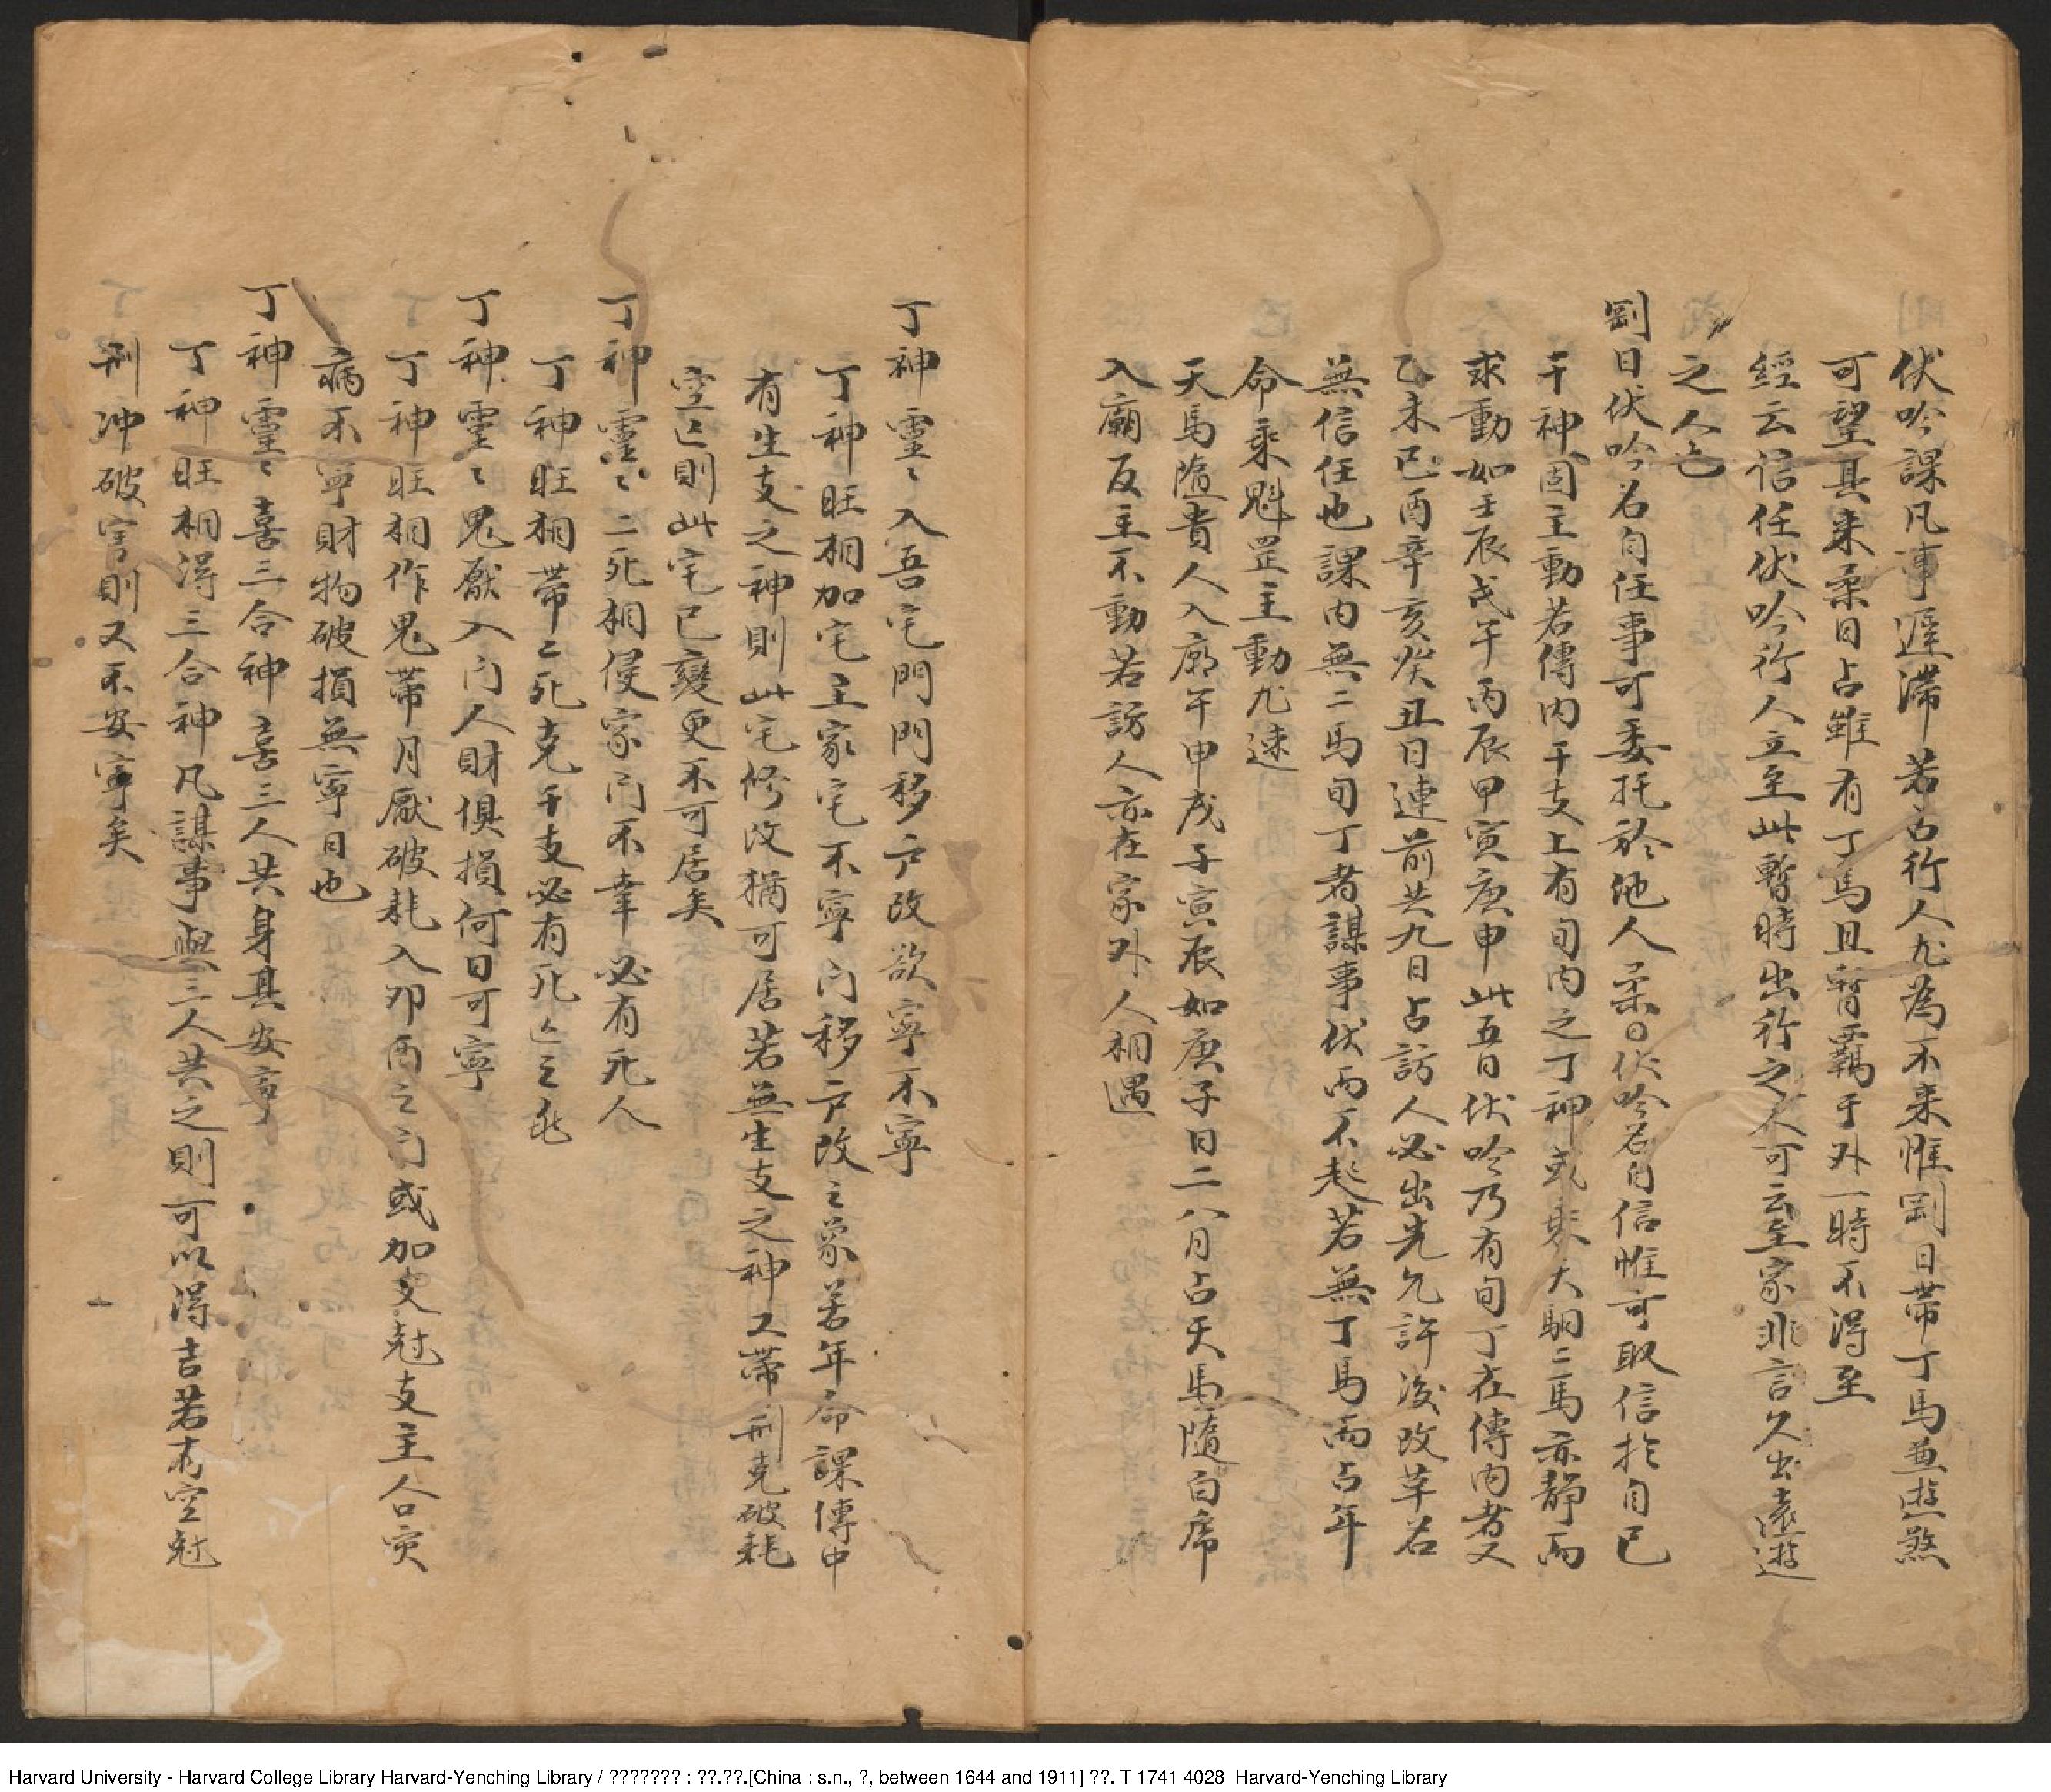 伏吟課凡事遲滯若占行人尤為不来惟剛日帶丁馬並遊煞
可望其来柔日占雖有丁馬且暫羈于外一時不得至
經云信任伏吟行人立至此暫時出行之人可云至家非言久出遠遊
之人也
剛日伏吟名自任事可委托於他人柔日伏吟名自信惟可取信於自己
干神固主動若傳内干支上有旬内之丁神或乘天馹二馬亦靜而
求動如壬辰戊午丙辰甲寅庚申此五日伏吟乃有旬丁在傳内者又
乙未己酉辛亥癸丑日連前共九日占訪人必出先允許後改革若
無信任也課内無二馬旬丁者謀事伏而不起若無丁馬而占年
命乘魁罡主動尤速
天馬隨貴人入廟午申戌子寅辰如庚子日二八月占天馬隨白席
入廟反主不動若訪人亦在家外人相遇
丁神靈〻入吾宅門門移户改欲寧不寧
丁神旺相加宅主家宅不寧门移户改之象若年命課傳中
有生支之神則此宅修改猶可居若無生支之神又帶刑克破耗
空亡則此宅已變更不可居矣
丁神靈〻二死相侵家门不幸必有死人
丁神旺相帶二死克干支必有死亡之
丁神靈〻鬼厭入门人財俱損何日可寧
丁神旺相作鬼帶月厭破耗入卯酉之门或加支尅支主人口灾
病不寧財物破損無寧日也
丁神靈〻喜三合神喜三人共身其安寧
丁神旺相得三合神凡謀事與三人共之則可以得吉若有空尅
刑冲破害則又不安寧矣
Harvard University - Harvard College Library Harvard-Yenching Library / ??????? : ??.??.[China : s.n., ?, between 1644 and 1911] ??. T 1741 4028 Harvard-Yenching Library